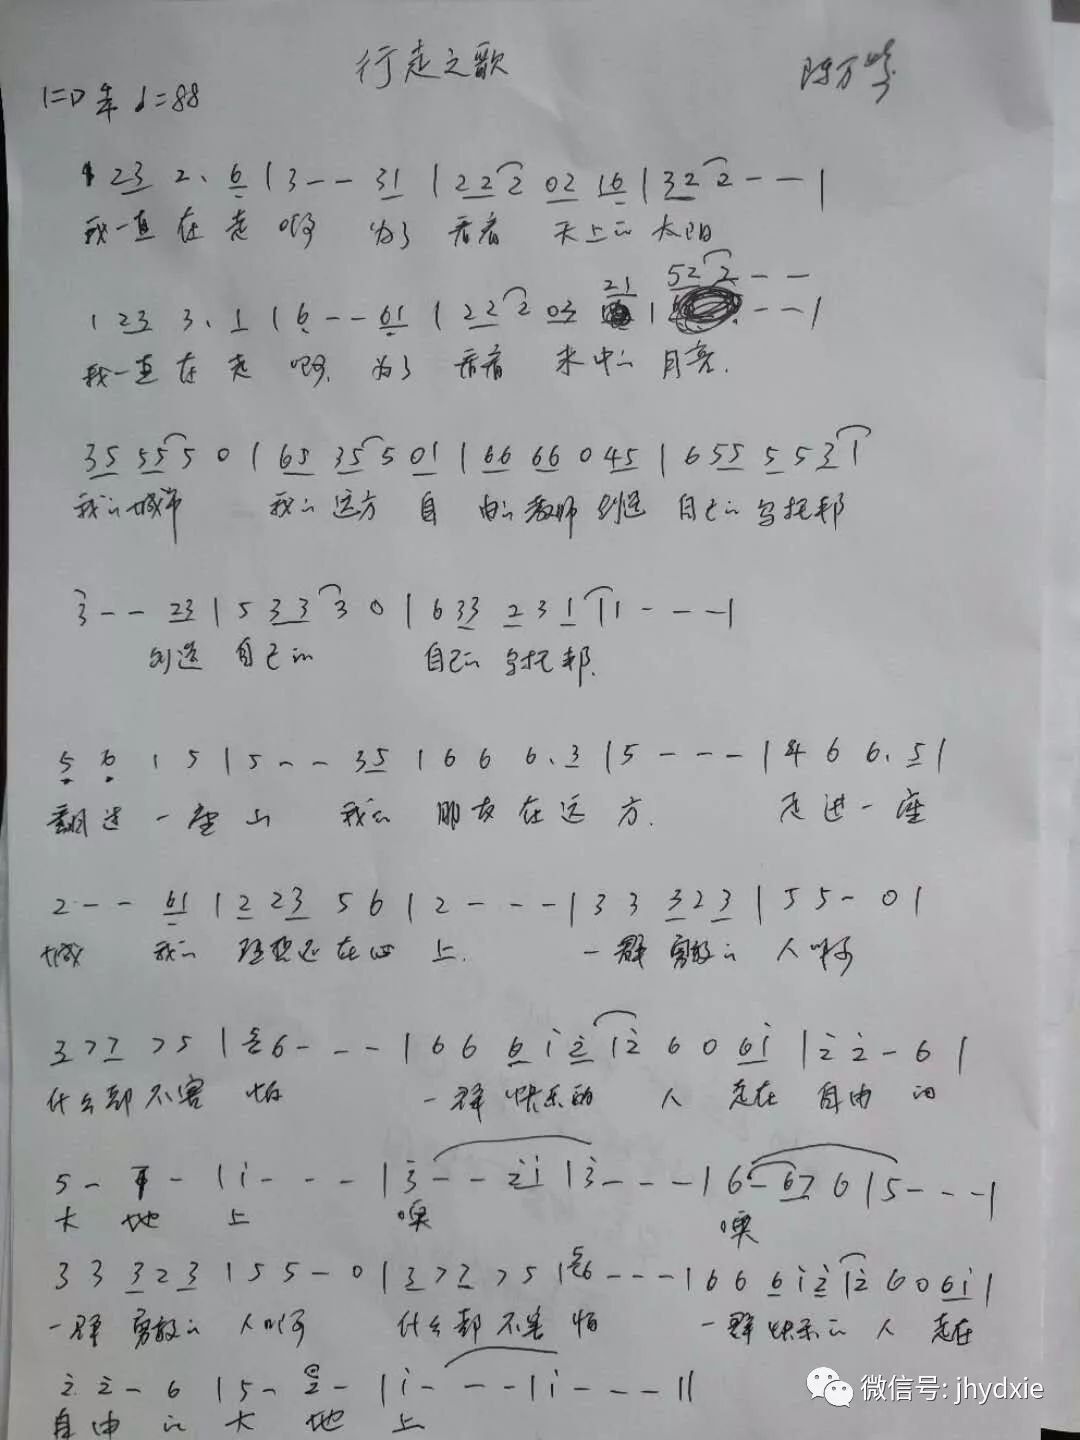 行走之歌
1=D 4/4 ♩=88
1 23 2. 6 | 3 - - 31 | 22 2 02 16 | 32 2 - - |
我一直在走啊 为了看着天上的太阳
21 52 2 - -
1 23 3. 1 | 6 - - 61 | 22 2 03 | - - |
我一直在走啊 为了看着水中的月亮.
35 55 5 0 | 65 35 5 01 | 66 66 0 45 | 6 55 5 5 3 1
我的城市 我的远方 自由的教师创造自己的乌托邦
3 - - 23 | 5 33 3 0 | 6 33 2 3 1 | 1 - - - |
创造自己的 自己的乌托邦.
5 6 1 5 | 5 - - 35 | 6 6 6. 3 | 5 - - - | 4 6 6. 5 |
翻过一座山 我的朋友在远方. 走进一座
2 - - 61 | 2 23 5 6 | 2 - - - | 3 3 3 2 3 | 5 5 - 0 |
城 我的理想还在心上. 一群勇敢的人啊
3 7 7 7 5 | 6 - - - | 6 6 6 i 2 | 2 6 0 6i | 2 2 - 6 |
什么都不害怕 一群快乐的人走在自由的
5 - - | i - - - | 3 - - 2i | 3 - - - | 6 - 67 6 | 5 - - - |
大地上 噢 噢
3 3 3 2 3 | 5 5 - 0 | 3 7 7 7 5 | 6 - - - | 6 6 6 i 2 | 2 6 0 6i |
一群勇敢的人啊 什么都不害怕 一群快乐的人走在
2 2 - 6 | 5 - 2 - | i - - - | i - - - ||
自由的大地上
微信号: jhydxie